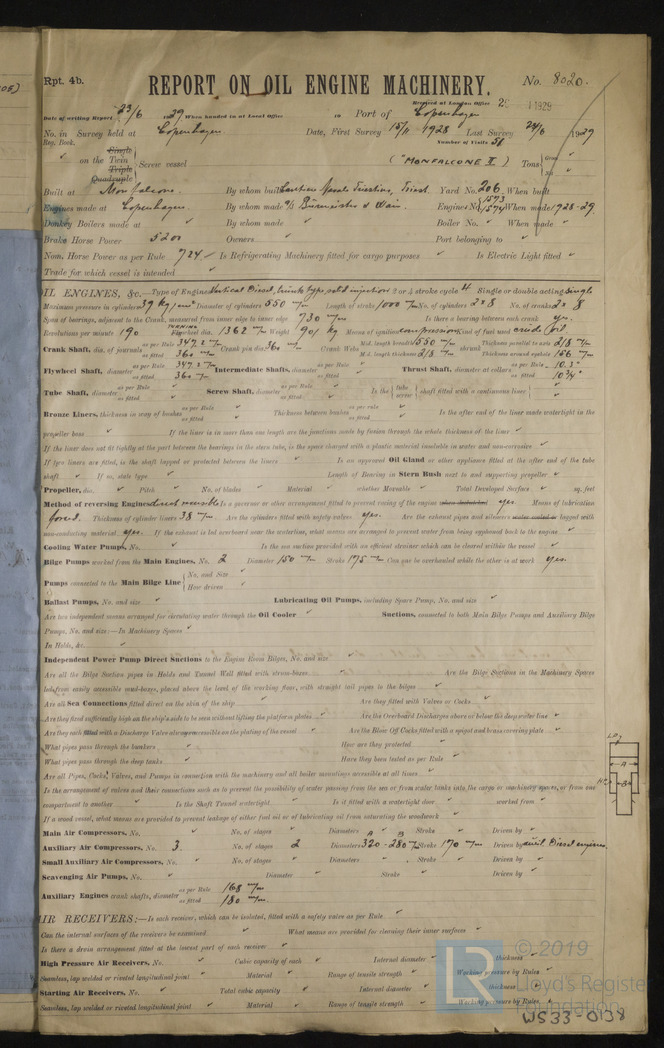 Rpt. 4b.
REPORT ON OIL ENGINE MACHINERY.
No. 8020.
Received at London Office
1929
Date of writing Report 23/6 1929 When handed in at Local Office 19 Port of Copenhagen
No. in Survey held at Copenhagen Date, First Survey 15/11-1928 Last Survey 24/6 1929
Reg. Book. Number of Visits 51
Single
on the Twin Screw vessel ("MONFALCONE I") Tons Gross
Triple Net
Quadruple
Built at Monfalcone. By whom built Cantiere Navale Triestino, Triest. Yard No. 206 When built
Engines made at Copenhagen. By whom made A/S Burmeister & Wain. Engines No. 1573 1574 When made 1928-29.
Donkey Boilers made at By whom made Boiler No. When made
Brake Horse Power 5200 Owners Port belonging to
Nom. Horse Power as per Rule 724 Is Refrigerating Machinery fitted for cargo purposes Is Electric Light fitted
Trade for which vessel is intended
OIL ENGINES, &c.—Type of Engines Vertical Diesel, trunk type, solid injection 2 or 4 stroke cycle 4 Single or double acting single
Maximum pressure in cylinders 39 kg/cm² Diameter of cylinders 550 m/m Length of stroke 1000 m/m No. of cylinders 2x8 No. of cranks 2x8
Span of bearings, adjacent to the Crank, measured from inner edge to inner edge 730 m/m Is there a bearing between each crank yes.
Revolutions per minute 190 Flywheel dia. 1362 m/m Weight 901 kg Means of ignition compression Kind of fuel used crude oil
Crank Shaft, dia. of journals as per Rule 347.2 m/m as fitted 360 m/m Crank pin dia. 360 m/m Crank Webs Mid. length breadth 550 m/m Mid. length thickness 218 m/m shrunk Thickness parallel to axis 218 m/m Thickness around eyehole 166 m/m
Flywheel Shaft, diameter as per Rule 347.2 m/m as fitted 360 m/m Intermediate Shafts, diameter as per Rule as fitted Thrust Shaft, diameter at collars as per Rule as fitted
Tube Shaft, diameter as per Rule as fitted Screw Shaft, diameter as per Rule as fitted Is the tube screw shaft fitted with a continuous liner
Bronze Liners, thickness in way of bushes as per Rule as fitted Thickness between bushes as per rule as fitted Is the after end of the liner made watertight in the
propeller boss If the liner is in more than one length are the junctions made by fusion through the whole thickness of the liner
If the liner does not fit tightly at the part between the bearings in the stern tube, is the space charged with a plastic material insoluble in water and non-corrosive
If two liners are fitted, is the shaft lapped or protected between the liners Is an approved Oil Gland or other appliance fitted at the after end of the tube
shaft If so, state type Length of Bearing in Stern Bush next to and supporting propeller
Propeller, dia. Pitch No. of blades Material whether Moveable Total Developed Surface sq. feet
Method of reversing Engines direct reversible Is a governor or other arrangement fitted to prevent racing of the engine when declutched yes. Means of lubrication
forced. Thickness of cylinder liners 38 m/m. Are the cylinders fitted with safety valves yes. Are the exhaust pipes and silencers water cooled or lagged with
non-conducting material yes. If the exhaust is led overboard near the waterline, what means are arranged to prevent water being syphoned back to the engine
Cooling Water Pumps, No. Is the sea suction provided with an efficient strainer which can be cleared within the vessel
Bilge Pumps worked from the Main Engines, No. 2 Diameter 150 m/m Stroke 175 m/m Can one be overhauled while the other is at work yes.
Pumps connected to the Main Bilge Line No. and Size How driven
Ballast Pumps, No. and size Lubricating Oil Pumps, including Spare Pump, No. and size
Are two independent means arranged for circulating water through the Oil Cooler Suctions, connected to both Main Bilge Pumps and Auxiliary Bilge
Pumps, No. and size:—In Machinery Spaces
In Holds, &c.
Independent Power Pump Direct Suctions to the Engine Room Bilges, No. and size
Are all the Bilge Suction pipes in Holds and Tunnel Well fitted with strum-boxes Are the Bilge Suctions in the Machinery Spaces
led from easily accessible mud-boxes, placed above the level of the working floor, with straight tail pipes to the bilges
Are all Sea Connections fitted direct on the skin of the ship Are they fitted with Valves or Cocks
Are they fixed sufficiently high on the ship's side to be seen without lifting the platform plates Are the Overboard Discharges above or below the deep water line
Are they each fitted with a Discharge Valve always accessible on the plating of the vessel Are the Blow Off Cocks fitted with a spigot and brass covering plate
What pipes pass through the bunkers How are they protected
What pipes pass through the deep tanks Have they been tested as per Rule
Are all Pipes, Cocks, Valves, and Pumps in connection with the machinery and all boiler mountings accessible at all times
Is the arrangement of valves and their connections such as to prevent the possibility of water passing from the sea or from water tanks into the cargo or machinery spaces, or from one
compartment to another Is the Shaft Tunnel watertight Is it fitted with a watertight door worked from
If a wood vessel, what means are provided to prevent leakage of either fuel oil or of lubricating oil from saturating the woodwork
Main Air Compressors, No. No. of stages Diameters Stroke Driven by
Auxiliary Air Compressors, No. 3 No. of stages 2 Diameters 320 - 280 m/m Stroke 170 m/m Driven by auxil. Diesel engines
Small Auxiliary Air Compressors, No. No. of stages Diameters Stroke Driven by
Scavenging Air Pumps, No. Diameter Stroke Driven by
Auxiliary Engines crank shafts, diameter as per Rule 168 m/m as fitted 180 m/m.
AIR RECEIVERS:—Is each receiver, which can be isolated, fitted with a safety valve as per Rule
Can the internal surfaces of the receivers be examined What means are provided for cleaning their inner surfaces
Is there a drain arrangement fitted at the lowest part of each receiver
High Pressure Air Receivers, No. Cubic capacity of each Internal diameter thickness
Seamless, lap welded or riveted longitudinal joint Material Range of tensile strength Working pressure by Rules
Starting Air Receivers, No. Total cubic capacity Internal diameter thickness
Seamless, lap welded or riveted longitudinal joint Material Range of tensile strength Working pressure by Rules
© 2019
LR Lloyd's Register
Foundation
WS33-0138